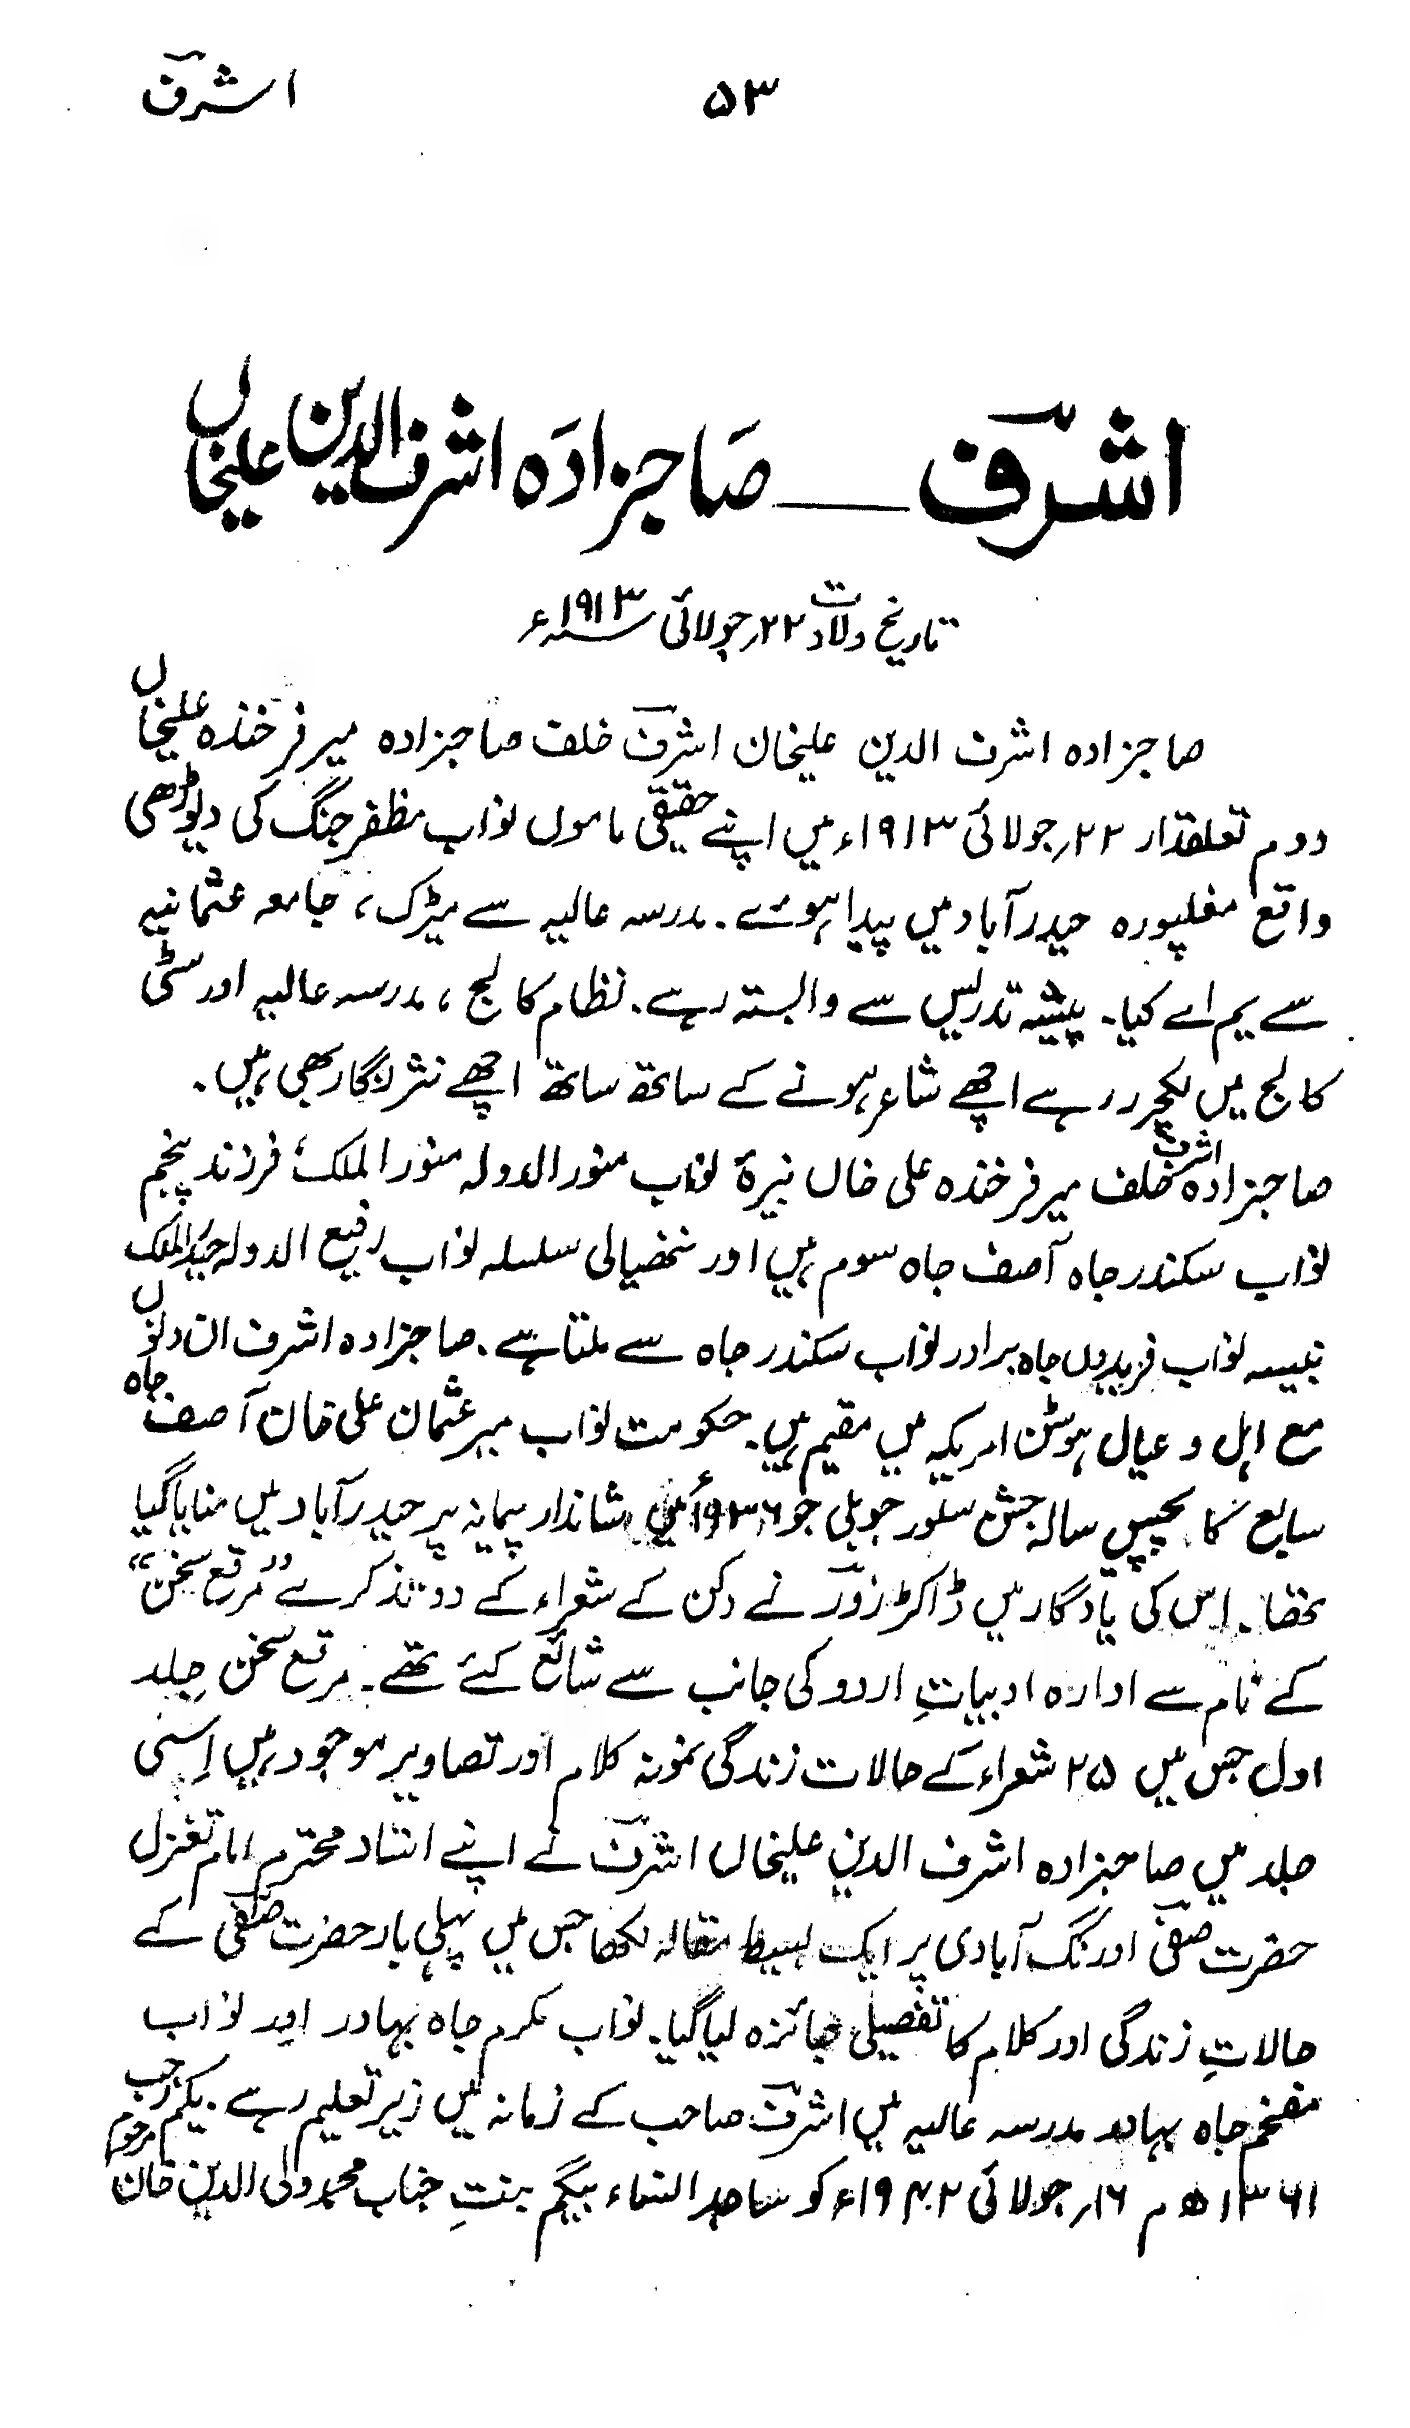 اشرفؔ
۵۳
اشرفؔ ـــ صاحبزادہ اشرف الدین علیخاں
تاریخ ولادت ۲۲؍جولائی ۱۹۱۳ء
صاحبزادہ اشرف الدین علیخان اشرفؔ خلف صاحبزادہ میر فرخندہ علیخاں
دوم تعلقدار ۲۲؍جولائی ۱۹۱۳ء میں اپنے حقیقی ماموں نواب مظفر جنگ کی دیوڑھی
واقع مغلپورہ حیدرآباد میں پیدا ہوئے۔ مدرسہ عالیہ سے میٹرک، جامعہ عثمانیہ
سے یم اے کیا۔ پیشہ تدریس سے وابستہ رہے۔ نظام کالج، مدرسہ عالیہ اور سٹی
کالج میں لکچرر رہے اچھے شاعر ہونے کے ساتھ ساتھ اچھے نثر نگار بھی ہیں۔
صاحبزادہ اشرفؔ خلف میر فرخندہ علی خاں نبیرۂ نواب منور الدولہ منور الملک فرزند پنجم
نواب سکندر جاہ آصف جاہ سوم ہیں اور ننھیالی سلسلہ نواب رفیع الدولہ حیدر الملک
نبیسہ نواب فریدوں جاہ برادر نواب سکندر جاہ سے ملتا ہے۔ صاحبزادہ اشرف ان دنوں
مع اہل و عیال ہوسٹن امریکہ میں مقیم ہیں۔ حکومت نواب میر عثمان علی خان آصف جاہ
سابع کا پچیس سالہ جشن سلور جوبلی جو ۱۹۳۶ء میں شاندار پیمانہ پر حیدرآباد میں منایا گیا
تھا۔ اِس کی یادگار میں ڈاکٹر زورؔ نے دکن کے شعراء کے دو تذکرے ”مرقع سخن“
کے نام سے ادارہ ادبیاتِ اردو کی جانب سے شائع کئے تھے۔ مرقع سخن جلد
اول جس میں ۲۵ شعراء کے حالات زندگی نمونہ کلام اور تصاویر موجود ہیں اِسی
جلد میں صاحبزادہ اشرف الدین علیخاں اشرفؔ نے اپنے استاد محترم امام تغزل
حضرت صفیؔ اورنگ آبادی پر ایک بسیط مقالہ لکھا جس میں پہلی بار حضرت صفیؔ کے
حالاتِ زندگی اور کلام کا تفصیلی جائزہ لیا گیا۔ نواب مکرم جاہ بہادر اور نواب
مفخم جاہ بہادر مدرسہ عالیہ میں اشرفؔ صاحب کے زمانہ میں زیر تعلیم رہے۔ یکم رجب
۱۳۶۱ھ م ۱۶؍جولائی ۱۹۴۲ء کو ساجد النساء بیگم بنتِ جناب محمد ولی الدین خان مرحوم